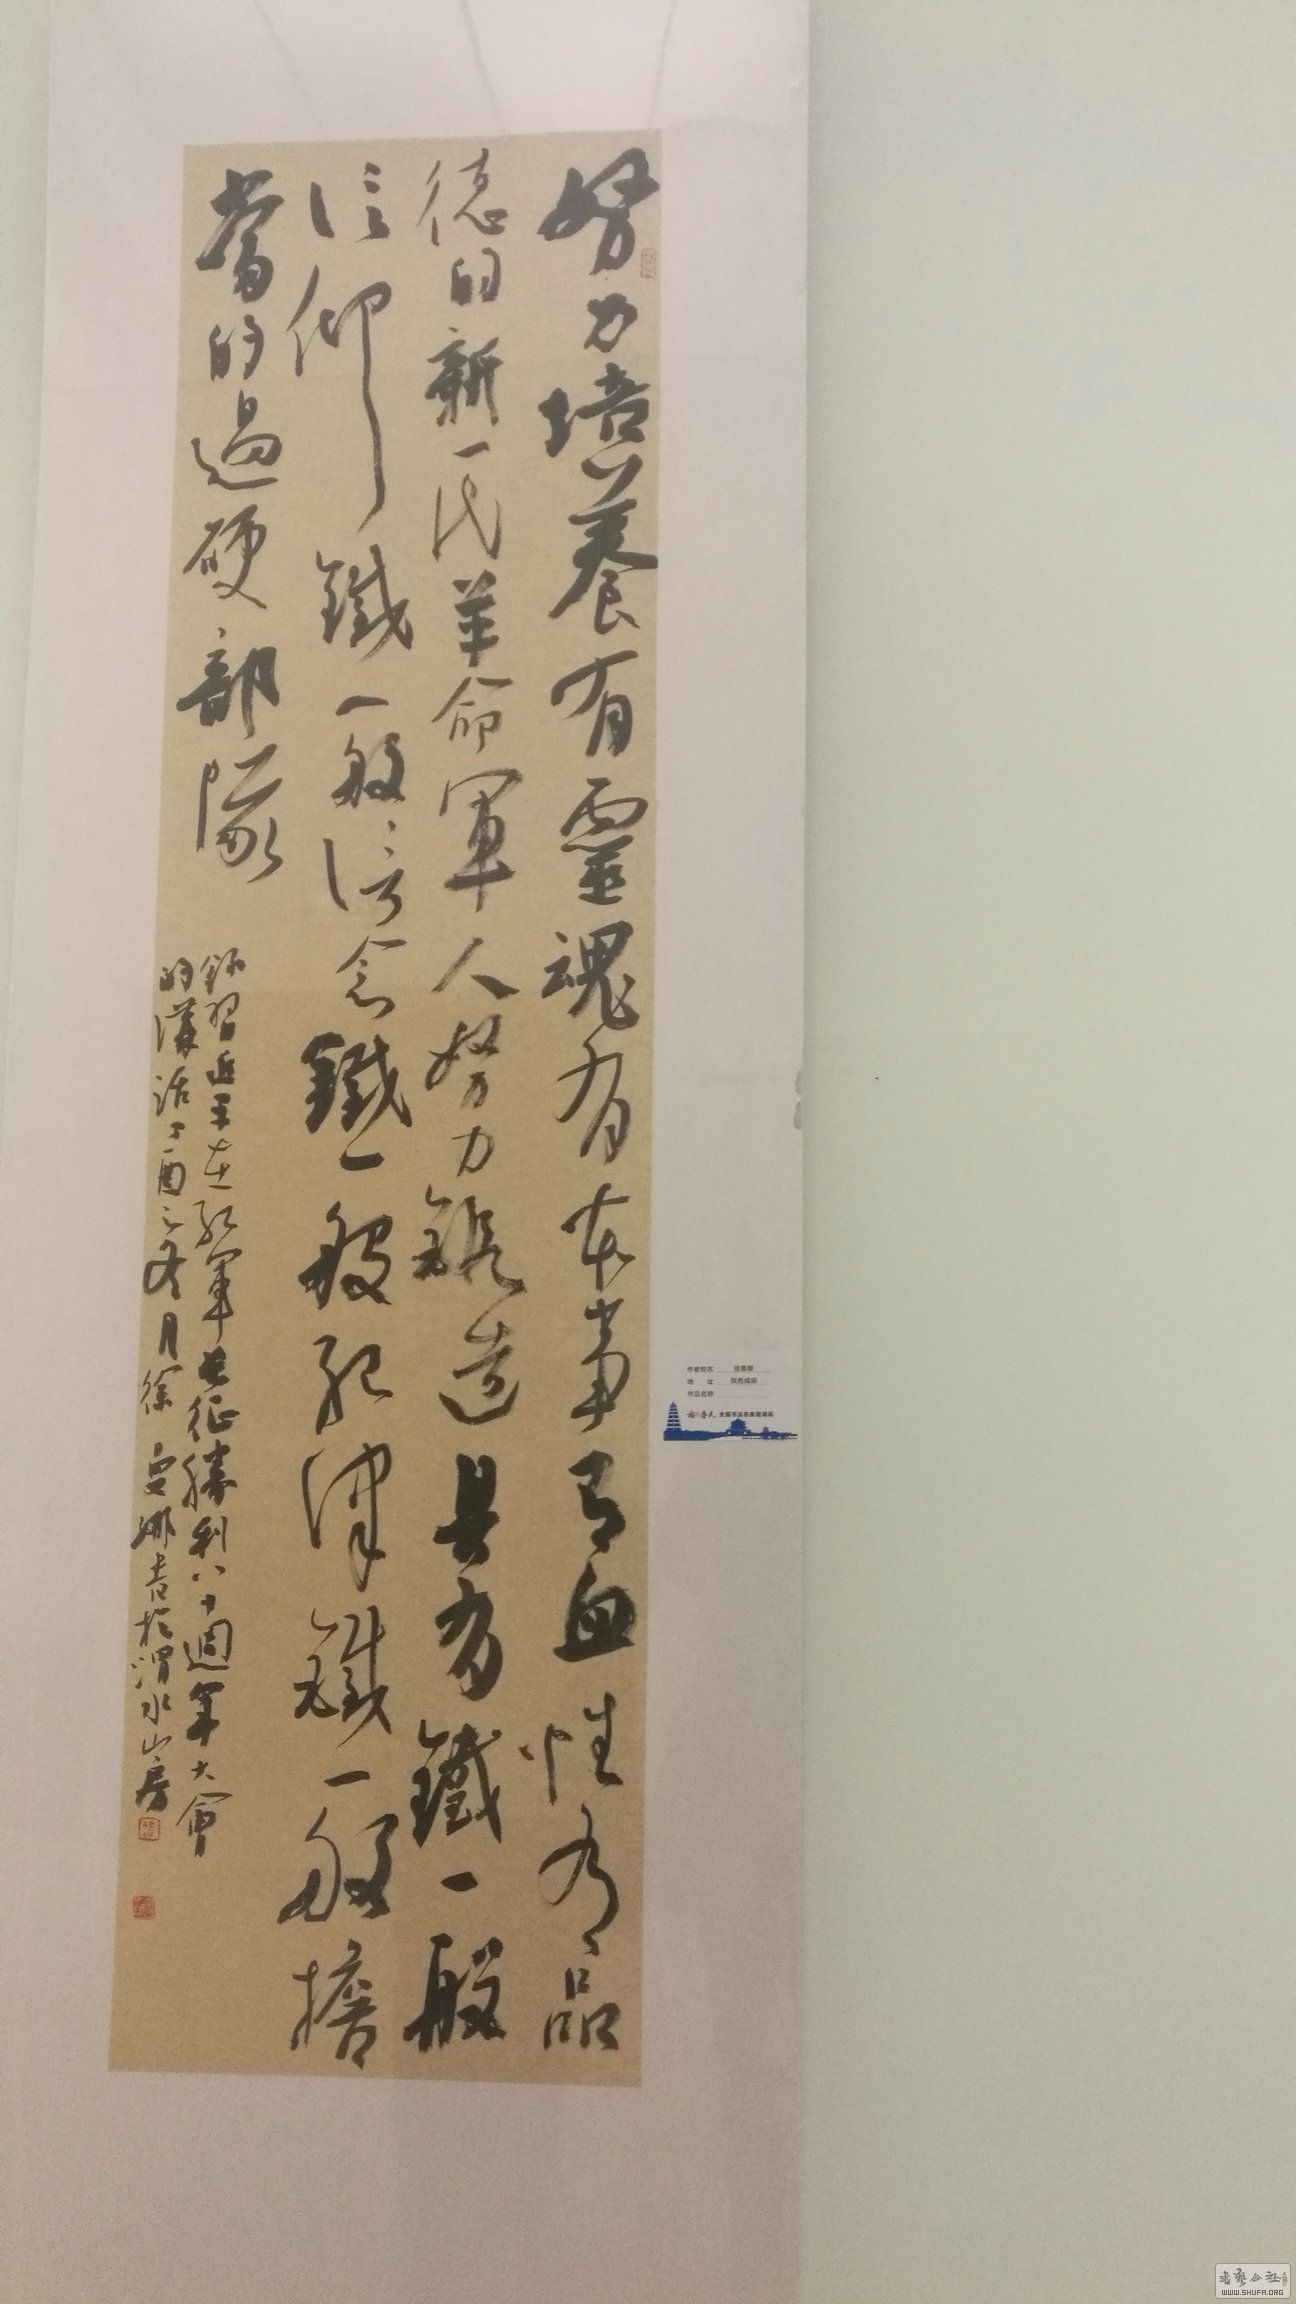 努力培養有靈魂有本事有血性有品
德的新一代革命軍人努力鍛造具有鐵一般
信仰鐵一般信念鐵一般紀律鐵一般擔
當的過硬部隊
錄習近平在紅軍長征勝利八十週年大會
的講話丁酉之冬月徐曼娜書於渭水山房
作者姓名 徐曼娜
地 址 陕西咸阳
作品名称
全国书法名家邀请展
书艺公社
WWW.SHUFA.ORG